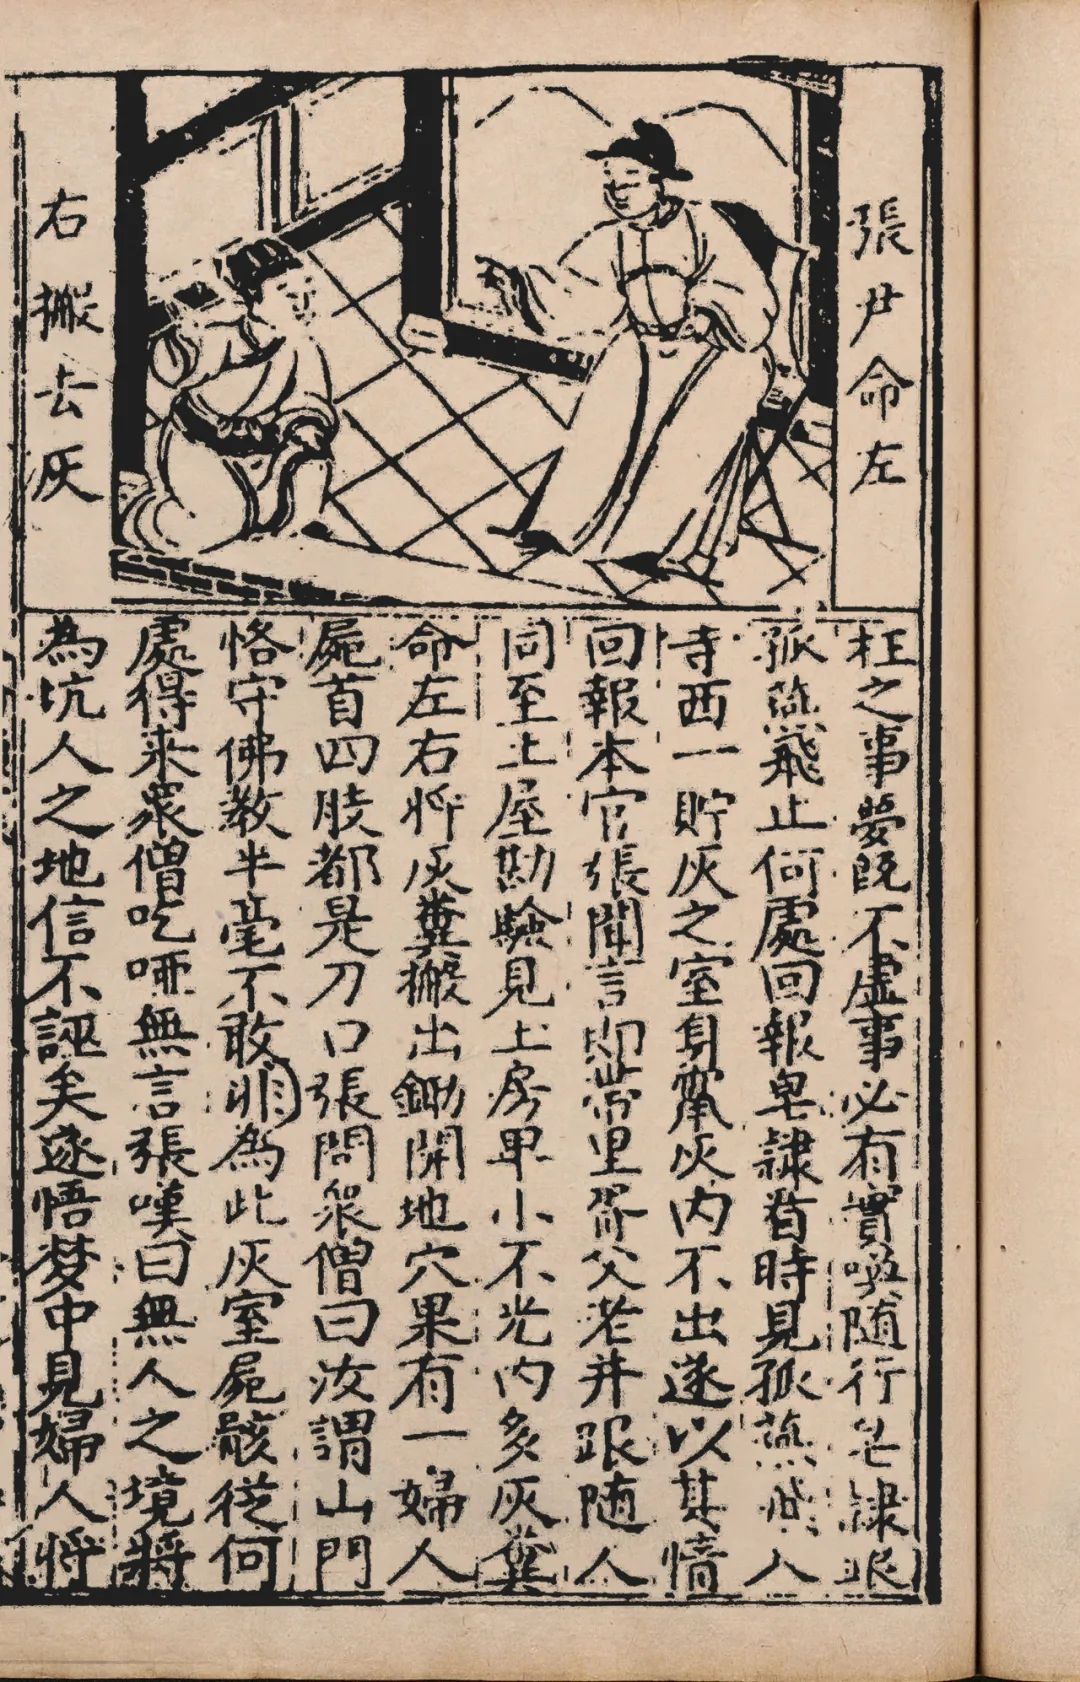 張尹命左
右搬去灰
枉之事夢既不虛事必有實喚隨行皂隷跟
孤燕飛止何處回報皂隷看時見孤燕飛入
寺西一貯灰之室身窜灰内不出遂以其情
回報本官張聞言即帶里胥父老并跟随人
同至土屋勘驗見土房卑小不光内多灰糞
命左右将灰糞搬出鋤開地穴果有一婦人
屍首四肢都是刀口張問衆僧曰汝謂山門
恪守佛教半毫不敢非為此灰室屍骸從何
處得来衆僧吃啞無言張嘆曰無人之境將
為坑人之地信不誣矣遂悟梦中見婦人將